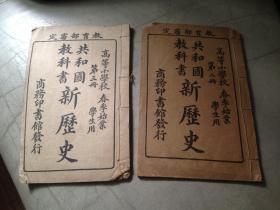 教育部審定
高等小學校 春季始業
第三冊 學生用
共和國
教科書
新歷史
商務印書館發行
教育部審定
高等小學校 春季始業
學生用
共和國
教科書
新歷史
商務印書館發行